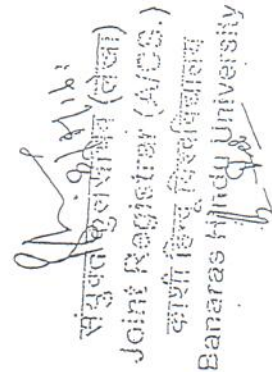 संयुक्त कुलसचिव (लेखा)
Joint Registrar (A/Cs.)
काशी हिन्दू विश्वविद्यालय
Banaras Hindu University